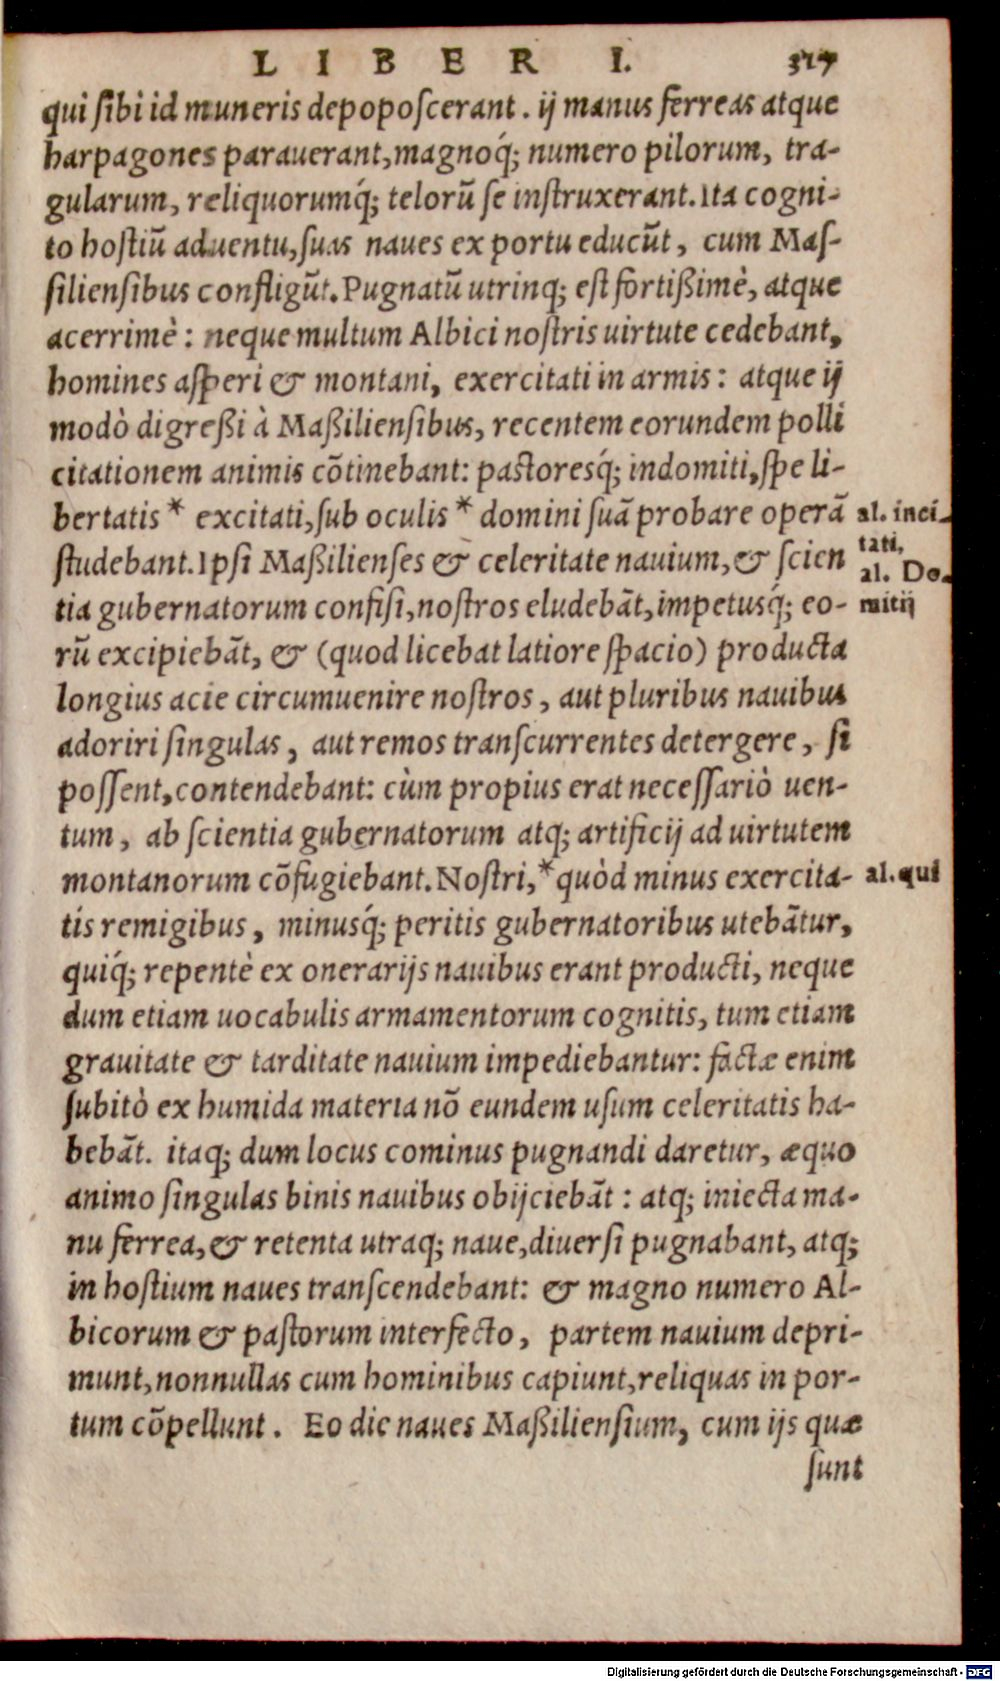 LIBER I. 317
qui ſibi id muneris depopoſcerant. ij manus ferreas atque
harpagones parauerant, magnoq́; numero pilorum, tra-
gularum, reliquorumq́; telorũ ſe inſtruxerant. Ita cogni-
to hoſtiũ aduentu, ſuas naues ex portu educũt, cum Maſ-
ſilienſibus confligũt. Pugnatũ utrinq; eſt fortißimè, atque
acerrimè: neque multum Albici noſtris uirtute cedebant,
homines aſperi & montani, exercitati in armis: atque ij
modò digreßi à Maßilienſibus, recentem eorundem polli
citationem animis cõtinebant: paſtoresq́; indomiti, ſpe li-
bertatis * excitati, ſub oculis * domini ſuã probare operã
al. inci-
tati,
al. Do-
mitij
ſtudebant. Ipſi Maßilienſes & celeritate nauium, & ſcien
tia gubernatorum confiſi, noſtros eludebãt, impetusq́; eo-
rũ excipiebãt, & (quod licebat latiore ſpacio) producta
longius acie circumuenire noſtros, aut pluribus nauibus
adoriri ſingulas, aut remos tranſcurrentes detergere, ſi
poſſent, contendebant: cùm propius erat neceſſariò uen-
tum, ab ſcientia gubernatorum atq; artificij ad uirtutem
montanorum cõfugiebant. Noſtri, * quòd minus exercita-
al. qui
tis remigibus, minusq́; peritis gubernatoribus utebãtur,
quiq́; repentè ex onerarijs nauibus erant producti, neque
dum etiam uocabulis armamentorum cognitis, tum etiam
grauitate & tarditate nauium impediebantur: factæ enim
ſubitò ex humida materia nõ eundem uſum celeritatis ha-
bebãt. itaq; dum locus cominus pugnandi daretur, æquo
animo ſingulas binis nauibus obijciebãt: atq; iniecta ma-
nu ferrea, & retenta utraq; naue, diuerſi pugnabant, atq;
in hoſtium naues tranſcendebant: & magno numero Al-
bicorum & paſtorum interfecto, partem nauium depri-
munt, nonnullas cum hominibus capiunt, reliquas in por-
tum cõpellunt. Eo die naues Maßilienſium, cum ijs quæ
ſunt
Digitalisierung gefördert durch die Deutsche Forschungsgemeinschaft - DFG